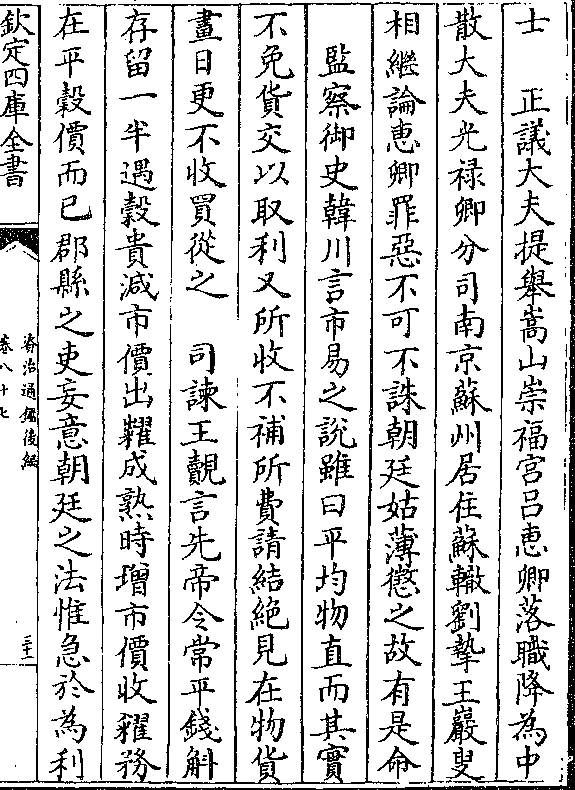 士　正議大夫提舉嵩山崇福宫吕惠卿落職降為中
散大夫光禄卿分司南京蘇州居住蘇轍劉摯王巖叟
相繼論惠卿罪惡不可不誅朝廷姑薄懲之故有是命
監察御史韓川言市易之說雖曰平均物直而其實
不免貨交以取利又所收不補所費請結絶見在物貨
畫日更不收買從之　司諫王覿言先帝令常平錢斛
存留一半遇穀貴減市價出糶成熟時增市價收糴務
在平穀價而已郡縣之吏妄意朝廷之法惟急於為利
欽定四庫全書
資治通鑑後編
卷八十七
三十一